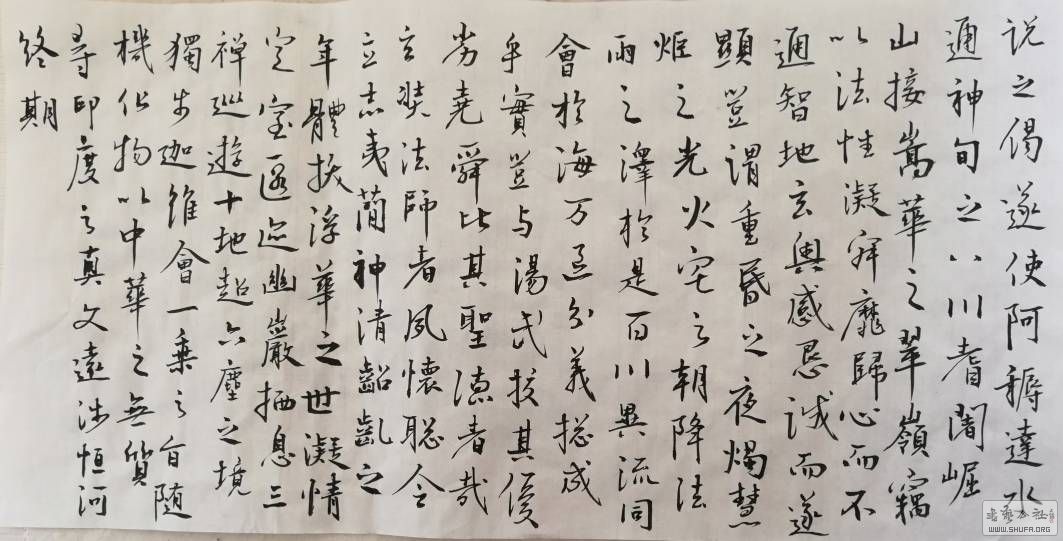 説之偈遂使阿耨達水
通神甸之八川耆闍崛
山接嵩華之翠嶺竊
以法性凝寂靡歸心而不
通智地玄奧感恳誠而遂
顯豈謂重昏之夜燭慧
炬之光火宅之朝降法
雨之澤於是百川異流同
會於海万區分義揔成
乎實豈与湯武挍其優
劣堯舜比其聖德者哉
玄奘法師者夙懷聡令
立志夷簡神清齠齔之
年體拔浮華之世凝情
定室匿迹幽巖栖息三
禅巡遊十地超六塵之境
獨步迦維會一乘之旨随
機化物以中華之無質
尋印度之真文遠涉恒河
終期
WWW.SHUFA.ORG